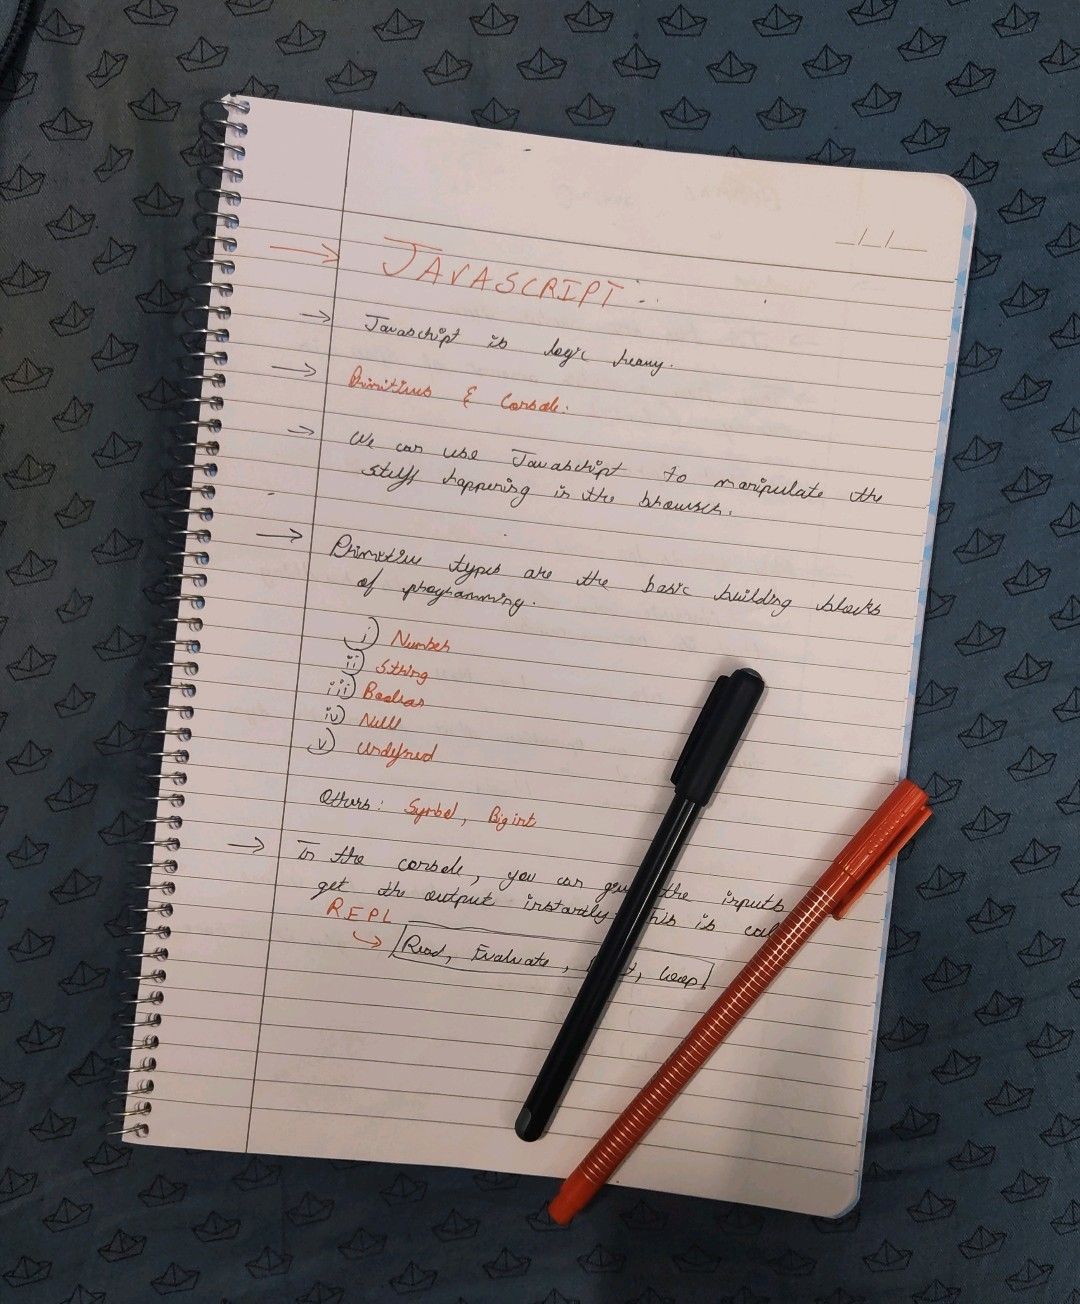 _/_/__
JAVASCRIPT:
Javascript is logic heavy.
Primitives & Console.
We can use Javascript to manipulate the
stuff happening in the browser.
Primitive types are the basic building blocks
of programming.
i) Number
ii) String
iii) Boolean
iv) Null
v) Undefined
Others: Symbol, Bigint
In the console, you can the inputs
get the output instantly. This is
REPL
Read, Evaluate, Loop